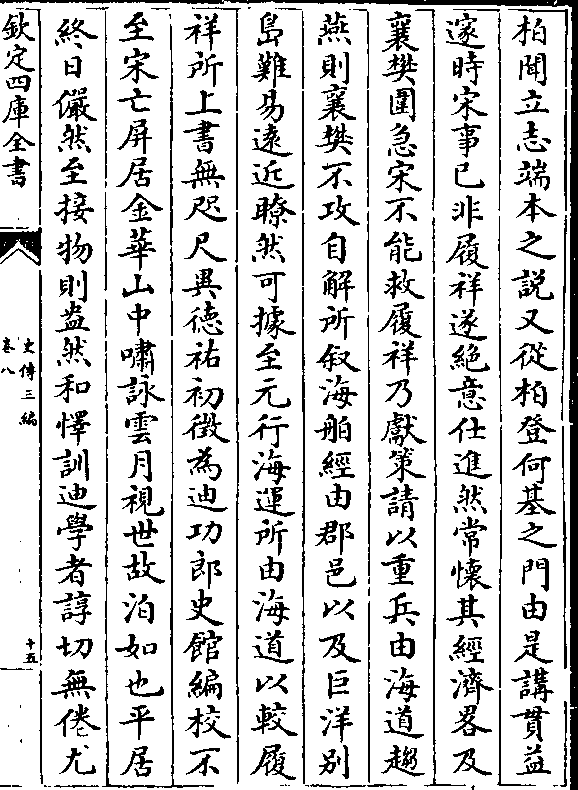 柏聞立志端本之說又從柏登何基之門由是講貫益
邃時宋事已非履祥遂絕意仕進然常懷其經濟畧及
襄樊圍急宋不能救履祥乃獻策請以重兵由海道趨
燕則襄樊不攻自解所叙海舶經由郡邑以及巨洋别
島難易遠近瞭然可據至元行海運所由海道以較履
祥所上書無咫尺異德祐初徴為迪功郎史館編校不
至宋亡屏居金華山中嘯詠雲月視世故泊如也平居
終日儼然至接物則盎然和懌訓迪學者諄切無倦尤
欽定四庫全書
史傳三編
卷八
十五